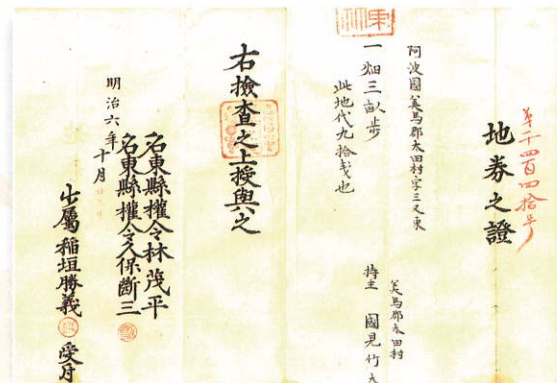 第千四百四拾号
地券之證
阿波國美馬郡太田村字三又東
一畑三畝歩
此地代九拾銭也
美馬郡太田村
持主 國見竹太
右撿查之上授與之
明治六年十月
名東縣權令林茂平
名東縣權令久保断三
出屬稲垣勝義